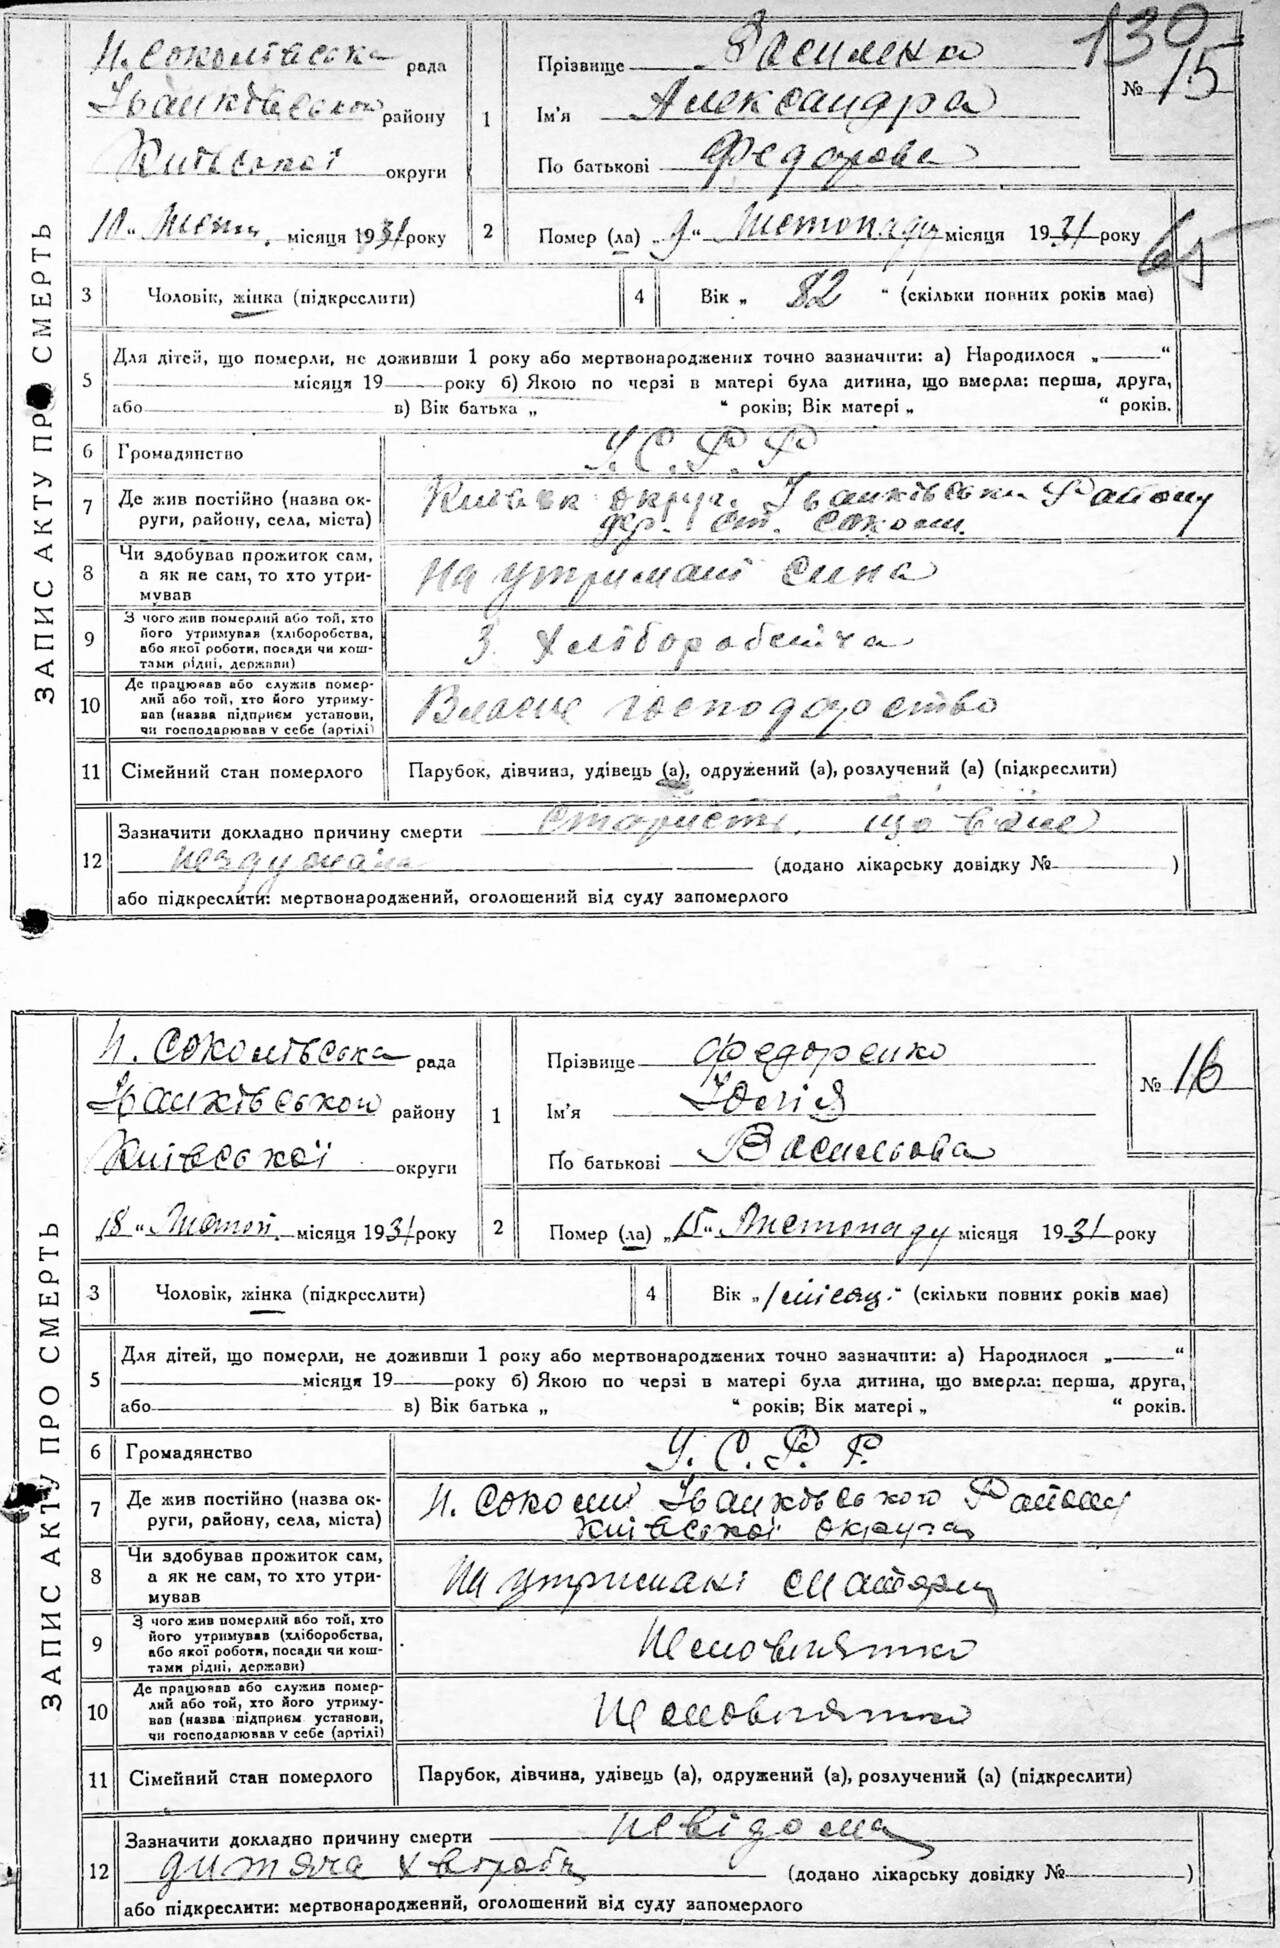 130
Н. Соколівська рада
Іванківської району
Київської округи
10 „ Листоп. місяця 1931 року
1
Прізвище Василенко
Ім'я Александра
По батькові Федорова
№ 15
2
Помер (ла) „9“ Листопаду місяця 1931 року
65
ЗАПИС АКТУ ПРО СМЕРТЬ
3 Чоловік, жінка (підкреслити)
4 Вік „ 82 “ (скільки повних років має)
5
Для дітей, що померли, не доживши 1 року або мертвонароджених точно зазначити: а) Народилося „ “
місяця 19 року б) Якою по черзі в матері була дитина, що вмерла: перша, друга,
або в) Вік батька „ “ років; Вік матері „ “ років.
6 Громадянство У.С.Р.Р
7 Де жив постійно (назва ок-
руги, району, села, міста)
Київськ округ. Іванківськ Району
ст. Сокол.
8 Чи здобував прожиток сам,
а як не сам, то хто утри-
мував
На утримані сина
9 З чого жив померлий або той, хто
його утримував (хліборобства,
або якої роботи, посади чи кош-
тами рідні, держави)
З Хліборобства
10 Де працював або служив помер-
лий або той, хто його утриму-
вав (назва підприєм установи,
чи господарював у себе (артілі)
Власне господарство
11 Сімейний стан померлого
Парубок, дівчина, удівець (а), одружений (а), розлучений (а) (підкреслити)
12 Зазначити докладно причину смерти Старість що
(додано лікарську довідку № )
або підкреслити: мертвонароджений, оголошений від суду запомерлого
Н. Соколівська рада
Іванківської району
Київської округи
18 „ Листоп. місяця 1931 року
1
Прізвище Федоренко
Ім'я Юлія
По батькові Васильова
№ 16
2
Помер (ла) „15“ Листопаду місяця 1931 року
ЗАПИС АКТУ ПРО СМЕРТЬ
3 Чоловік, жінка (підкреслити)
4 Вік „ 1 місяц. “ (скільки повних років має)
5
Для дітей, що померли, не доживши 1 року або мертвонароджених точно зазначити: а) Народилося „ “
місяця 19 року б) Якою по черзі в матері була дитина, що вмерла: перша, друга,
або в) Вік батька „ “ років; Вік матері „ “ років.
6 Громадянство У.С.Р.Р.
7 Де жив постійно (назва ок-
руги, району, села, міста)
Н. Соколи Іванківського Району
Київської округи
8 Чи здобував прожиток сам,
а як не сам, то хто утри-
мував
На утримані матери
9 З чого жив померлий або той, хто
його утримував (хліборобства,
або якої роботи, посади чи кош-
тами рідні, держави)
Немовлятко
10 Де працював або служив помер-
лий або той, хто його утриму-
вав (назва підприєм. установи,
чи господарював у себе (артілі)
Немовлятко
11 Сімейний стан померлого
Парубок, дівчина, удівець (а), одружений (а), розлучений (а) (підкреслити)
12 Зазначити докладно причину смерти невідома
дитяча хвороба (додано лікарську довідку № )
або підкреслити: мертвонароджений, оголошений від суду запомерлого